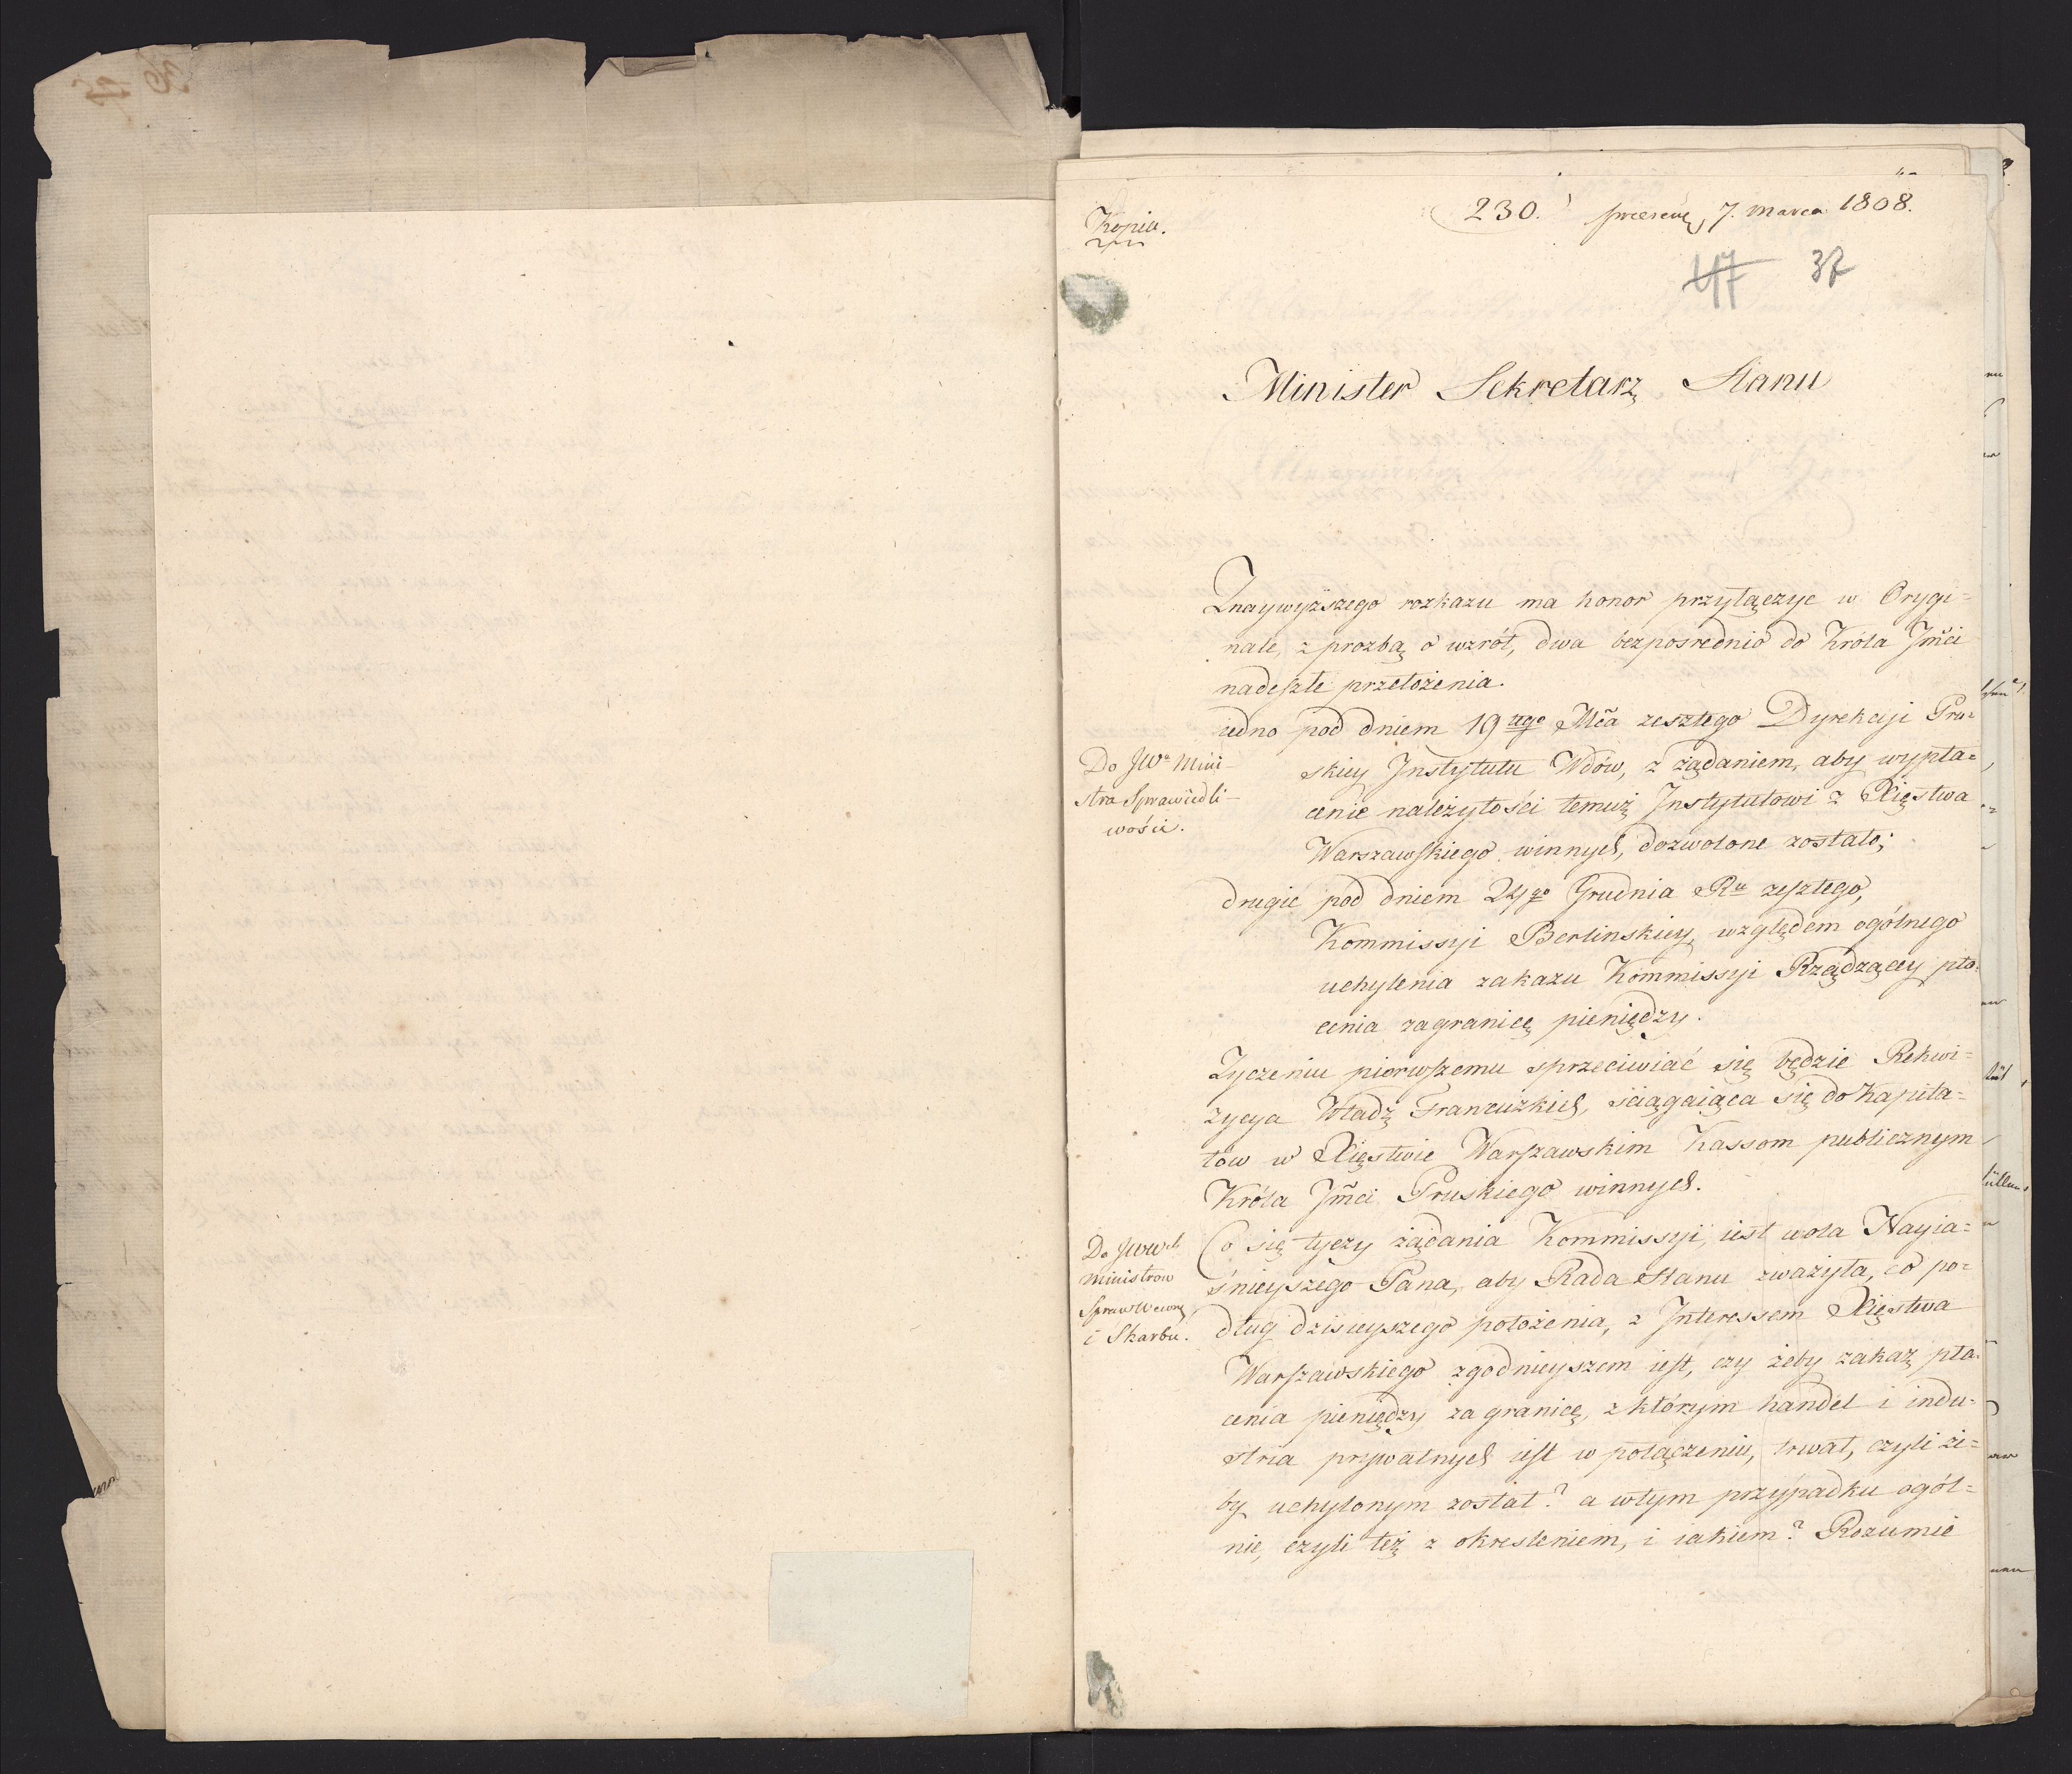 Kopia.
230. 7. Marca 1808.
47 37
Minister Sekretarz Stanu
Z naywyższego rozkazu ma honor przyłączyc w Orygi=
nale, z prozbą o wzrót, dwa bezpośrednio do Króla Jmći
nadeszłe przełożenia.
iedno pod dniem 19tego Mca zeszłego Dyrekcji Pru=
skiey Jnstytutu Wdów, z żądaniem, aby wypła=
cenie należytości temuż Jnstytutowi z Xięstwa
Warszawskiego winnych, dozwolone zostało;
Do JWo Mini-
stra Sprawiedli-
wości.
drugie pod dniem 24go Grudnia Ru zeszłego,
Kommissyi Berlinskiey, względem ogólnego
uchylenia zakazu Kommissyi Rządzącey pła=
cenia zagranicę pieniędzy.
Zyczeniu pierwszemu sprzeciwiać się będzie Rekwi=
zycya Władz Francuzkich, sciągaiąca się do Kapita=
łów w Xięstwie Warszawskim Kassom publicznym
Króla Jmći Pruskiego winnych.
Do JWWch
Ministrow
Spraw Wewnę
i Skarbu.
Co się tyczy żądania Kommissyi, iest wola Nayia=
śnieyszego Pana, aby Rada Stanu zważyła, co po=
dług dzisieyszego położenia, z Interessem Xięstwa
Warszawskiego zgodnieyszem iest, czy żeby zakaz pła=
cenia pieniędzy za granicę, z którym handel i indu=
stria prywatnych iest w połączeniu, trwał, czyli że=
by uchylonym został? a wtym przypadku ogól=
nie, czyli też z okresleniem, i iakiem? Rozumie